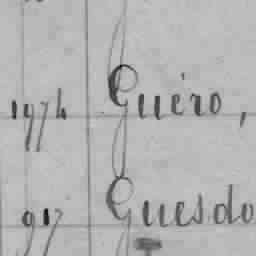 1974 Guéro,
917 Guesdo